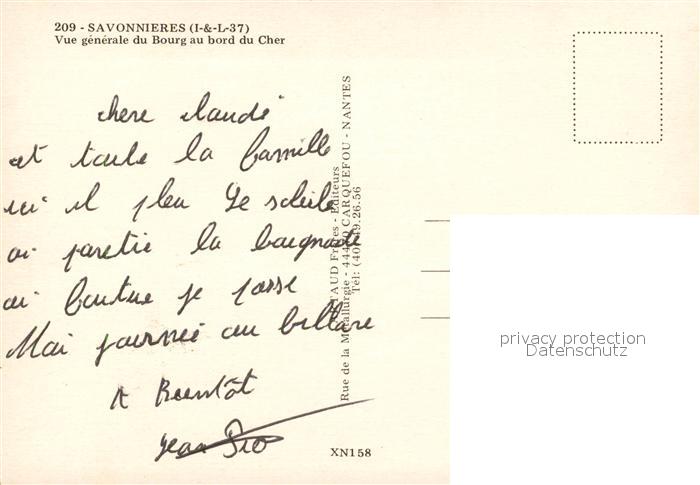 209 - SAVONNIERES (I-&-L-37)
Vue générale du Bourg au bord du Cher
chere claude
et toute la famille
ici il pleu le soleile
ai paretie la baignade
ai foutue je passe
Mai journée au billare
A Bientôt
Jean
Rue de la Métallurgie - 44470 CARQUEFOU - NANTES
Tél: (40) 49.26.56
XN158
privacy protection
Datenschutz